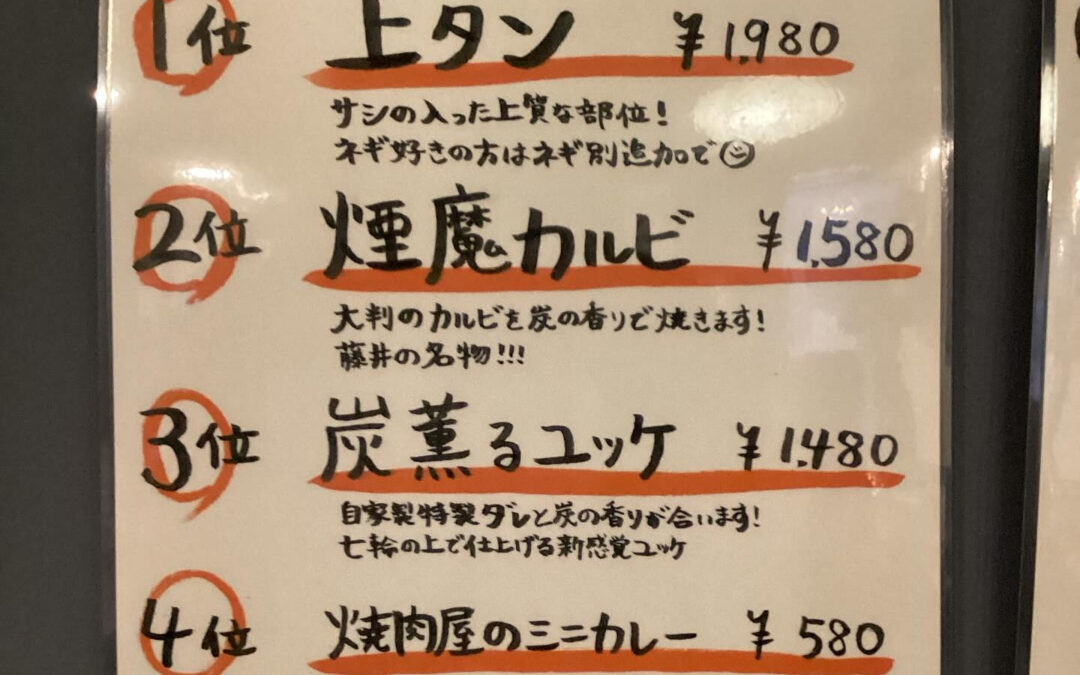 1位 上タン ¥1,980
サシの入った上質な部位!
ネギ好きの方はネギ別追加で
2位 煙魔カルビ ¥1,580
大判のカルビを炭の香りで焼きます!
藤井の名物!!!
3位 炭薫るユッケ ¥1,480
自家製特製ダレと炭の香りが合います!
七輪の上で仕上げる新感覚ユッケ
4位 焼肉屋のミニカレー ¥580